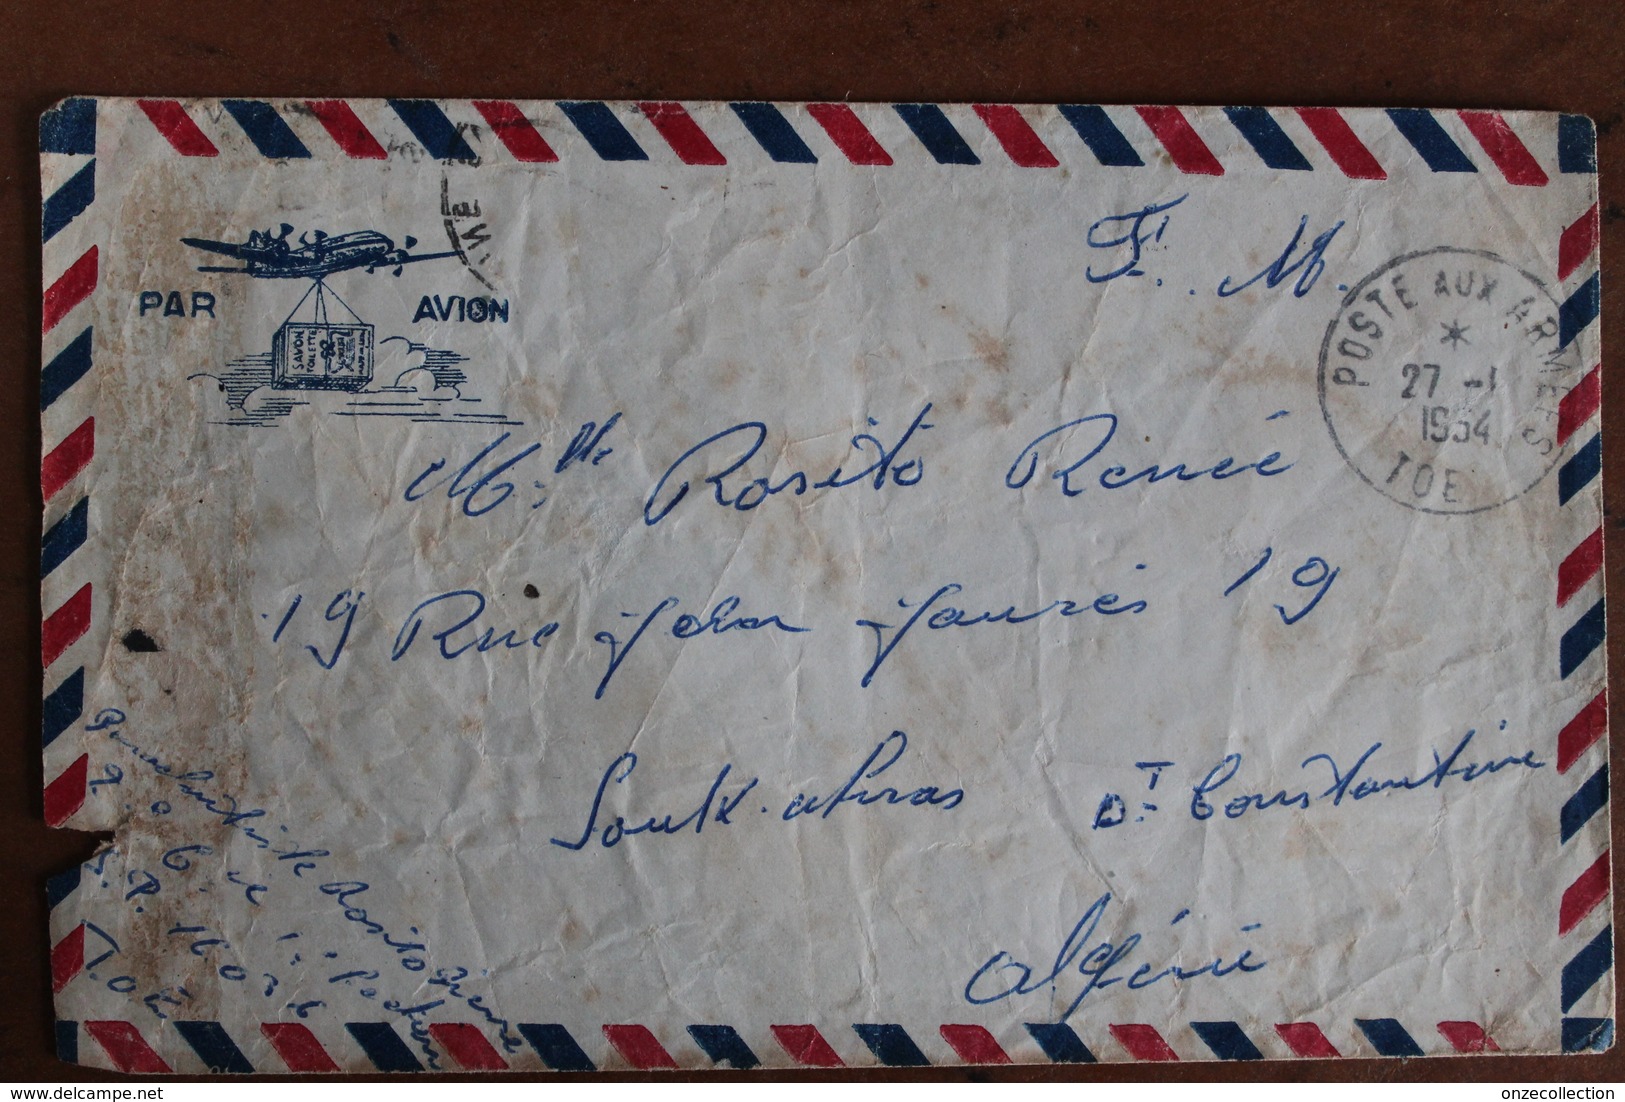 PAR AVION
SAVON
TOILETTE
F. M.
POSTE AUX ARMÉES
27 -1
1954
TOE
Mlle Rosito Renée
19 Rue Jean Jaurès 19
Souk-ahras Dt Constantine
Algérie
Parachutiste Rosito Pierre
S.P.
T.O.E
onzecollection